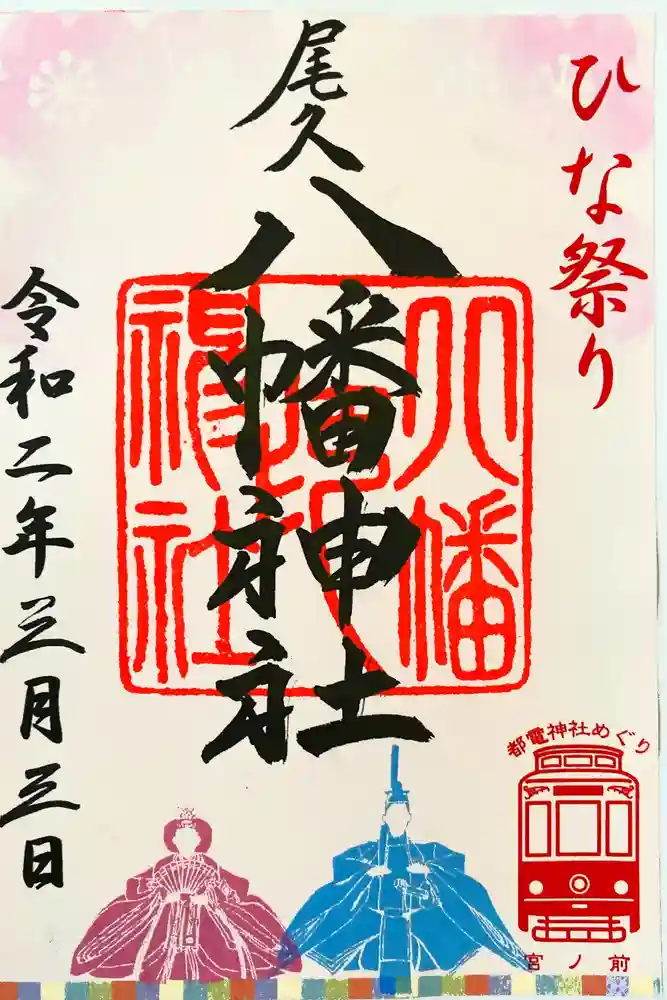 ひな祭り
尾久八幡神社
八幡
神社
令和二年三月三日
都電神社めぐり
宮ノ前